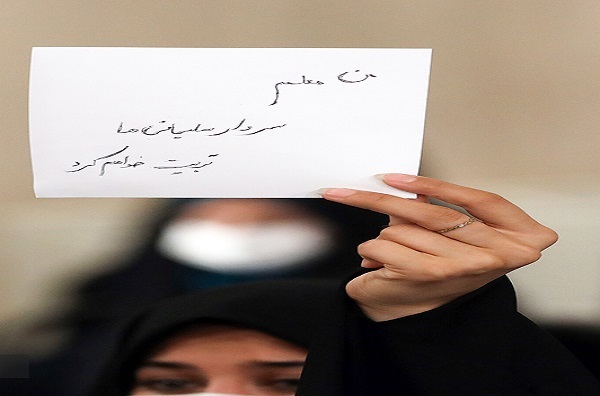 من معلمم
سردار سلیمانی‌ها
تربیت خواهم کرد